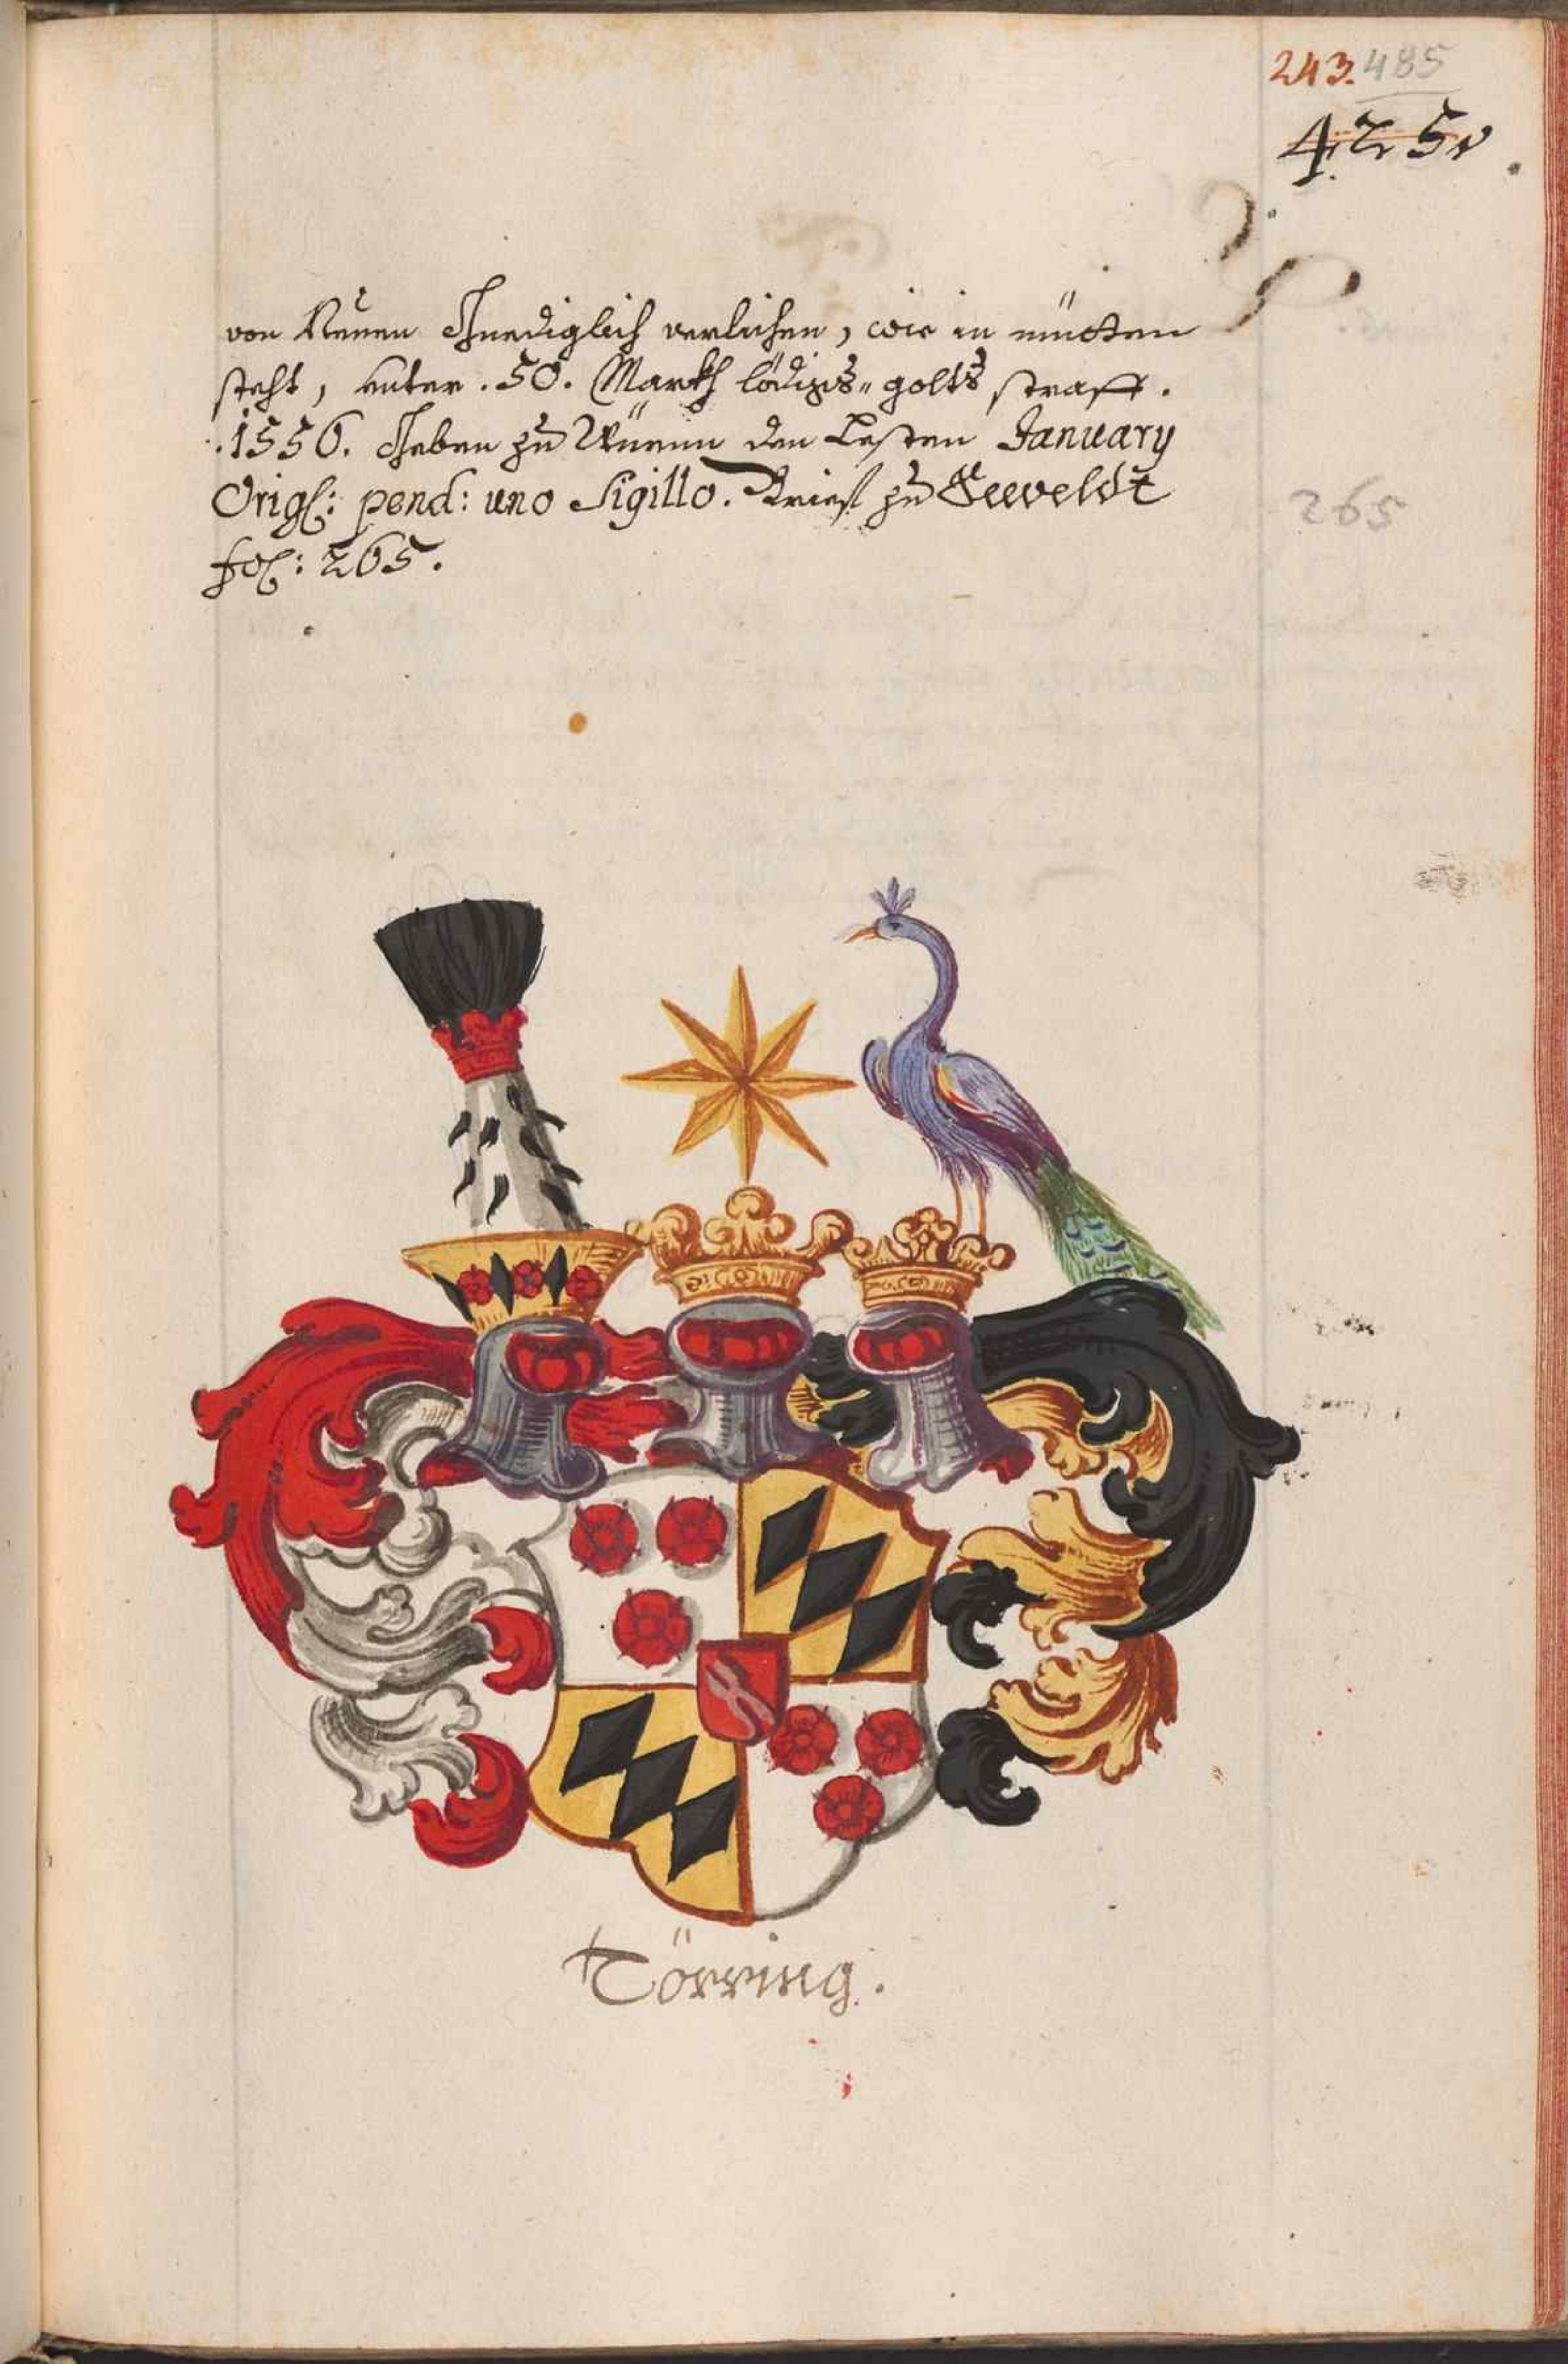 243. 485
425
von Neuen Gnediglich verlichen, wie in mitten
steht, unter .50. Markh lödigs= golts straff.
.1556. Geben zu Wienn den Lesten January
Orig: pend: uno Sigillo. Brief zu Seeveldt
fol: 265.
265
Törring.